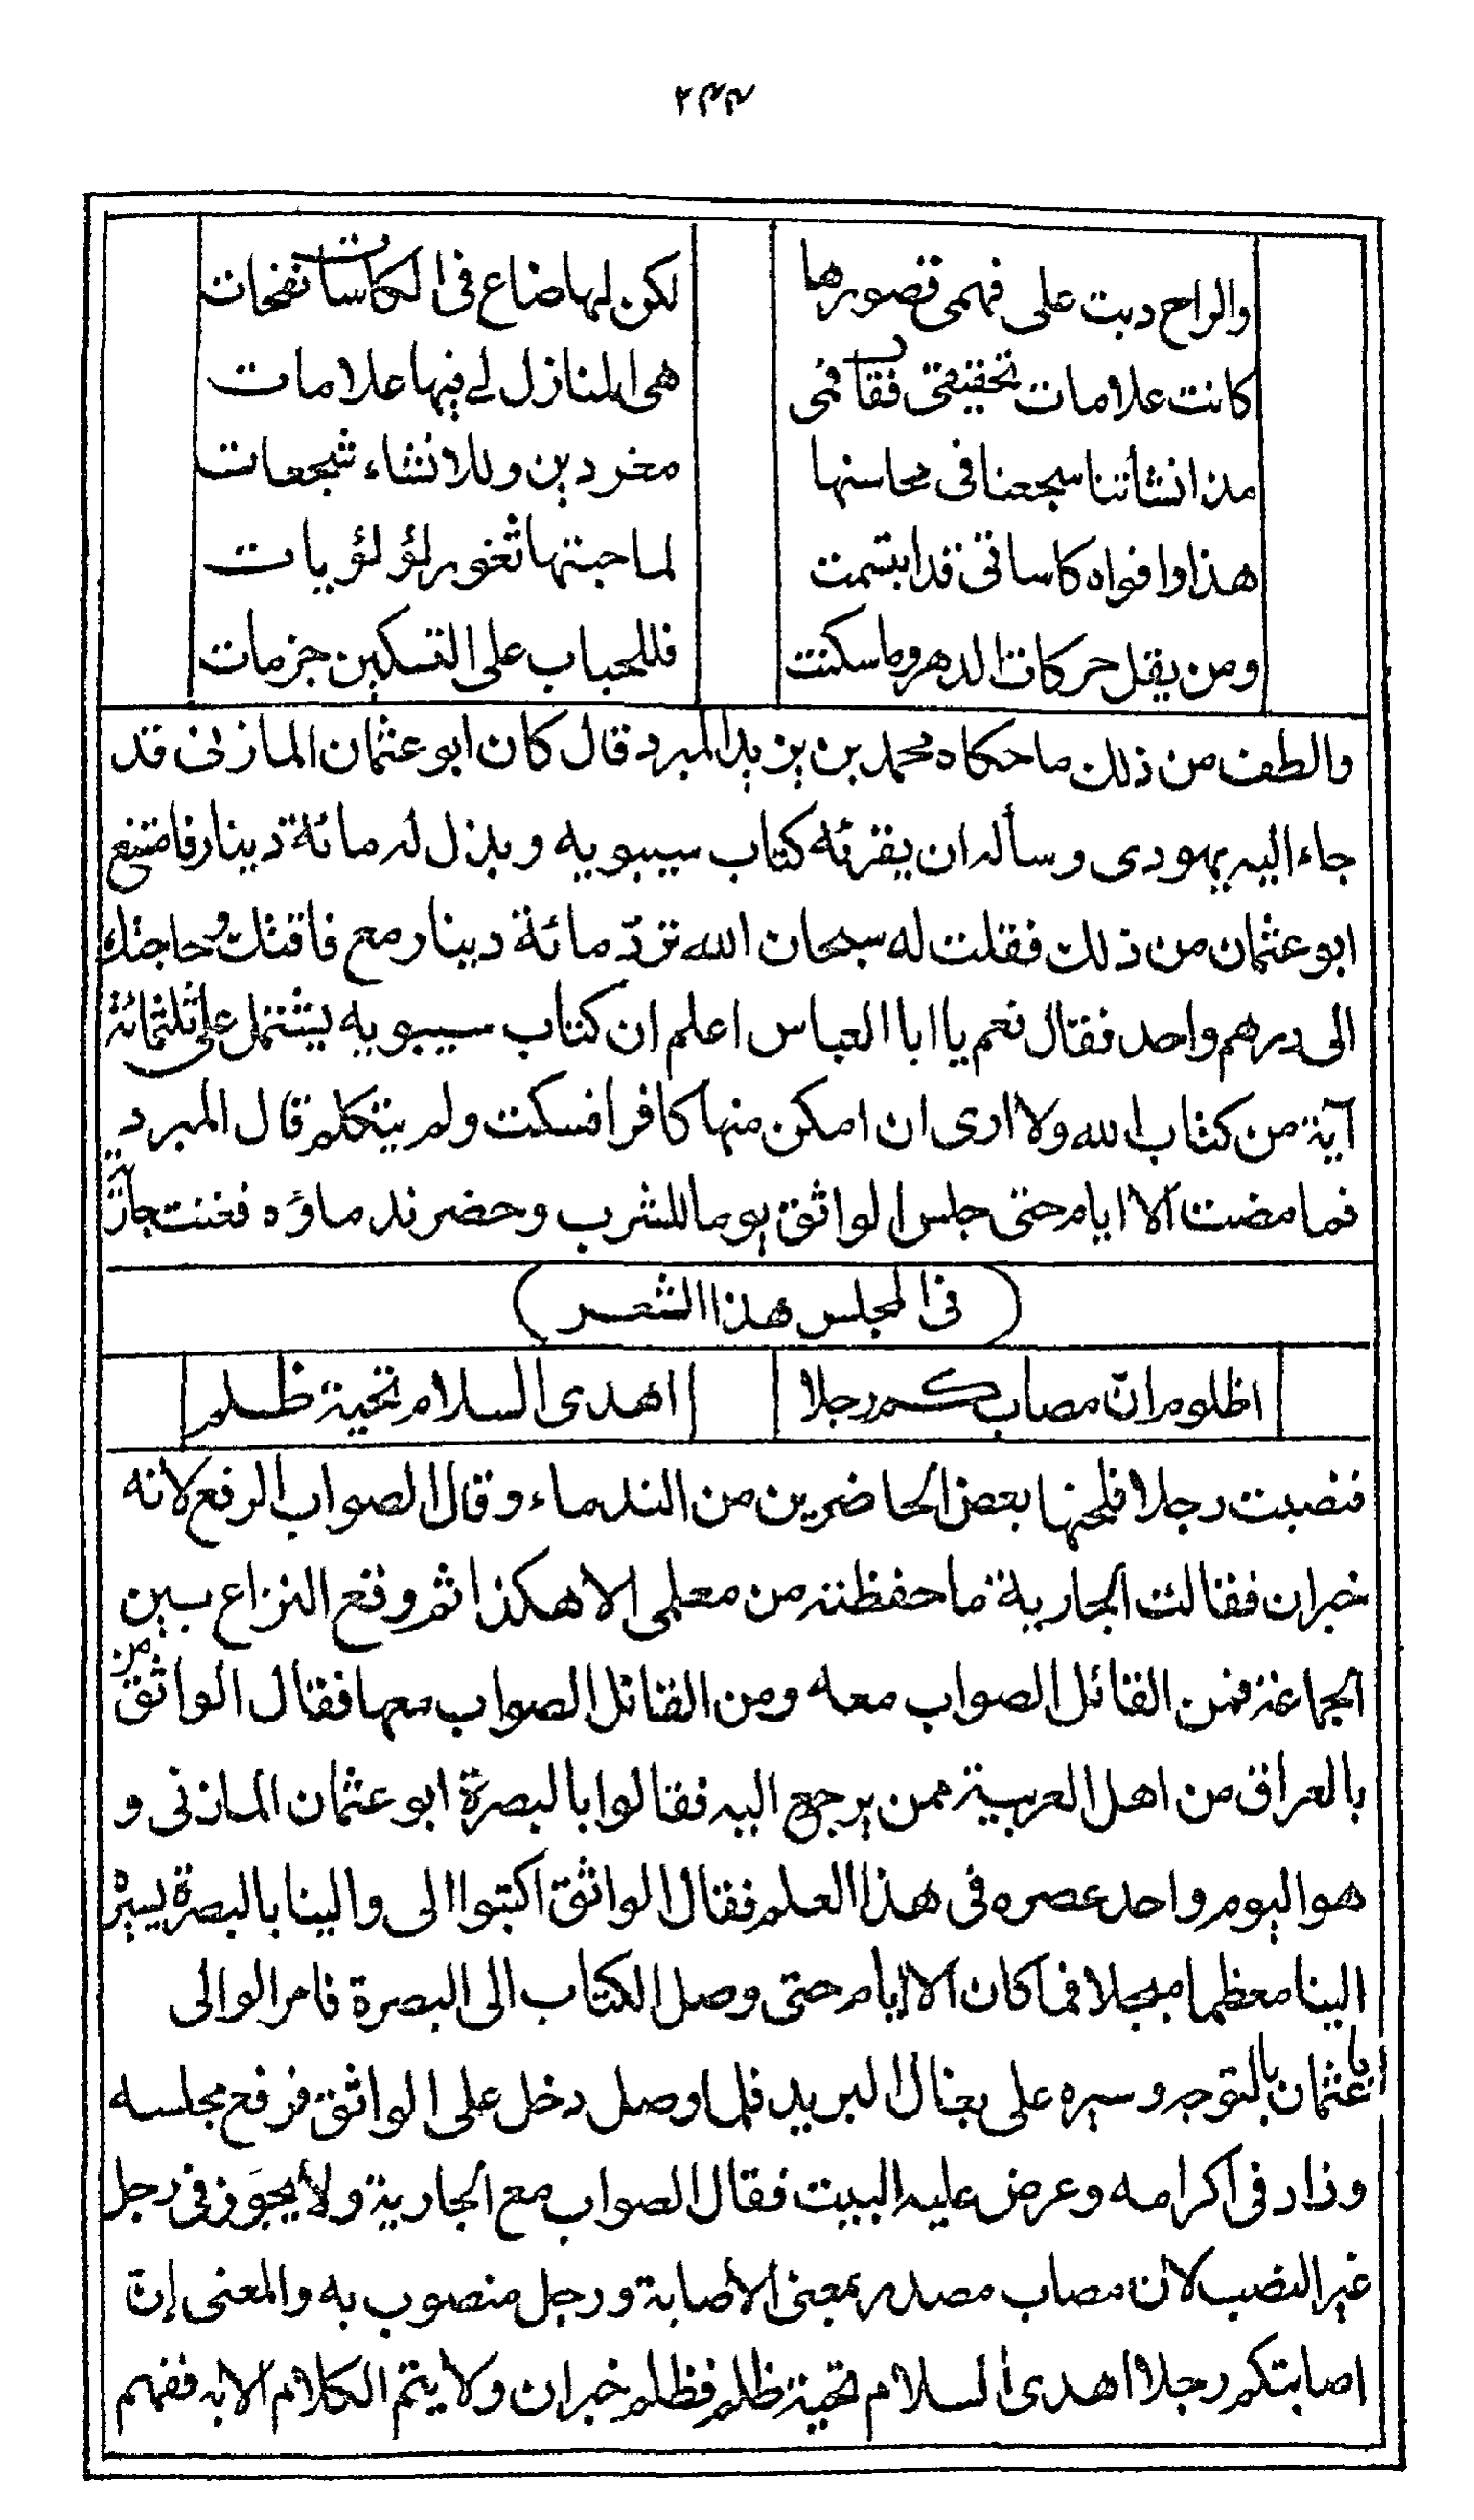 ٢٤٤
والراح دبت على فهمى قصورها لكن لها ضاع فى الكاسات نفخات
كانت علامات تحقيقى فقافى هى المنازل لى فيها علامات
مذ انشأتنا سجعنا فى محاسنها مغردين وللانشاء شجعات
هذا وافواه كاساتى قد ابتسمت لما حبتها ثغور لؤلؤيات
ومن يقل حركات الدهر وما سكنت فللحباب على التسكين جزمات
والطف من ذلك ما حكاه محمد بن يزيد المبرد قال كان ابو عثمان المازنى قد
جاء اليه يهودى وسأله ان يقرئه كتاب سيبويه وبذل له مائة دينار فامتنع
ابو عثمان من ذلك فقلت له سبحان الله تردّ مائة دينار مع فاقتك وحاجتك
الى درهم واحد فقال نعم يا ابا العباس اعلم ان كتاب سيبويه يشتمل على ثلثمائة
آية من كتاب الله ولا ارى ان امكن منها كافرا فسكت ولم يتكلم قال المبرد
فما مضت الا ايام حتى جلس الواثق يوما للشرب وحضر ندماؤه فغنت جارية
(فى المجلس هذا الشعر)
اظلوم انّ مصابكم رجلا اهدى السلام تحية ظلم
فنصبت رجلا فلحنها بعض الحاضرين من الندماء وقال الصواب الرفع لانه
خبر ان فقالت الجارية ما حفظته من معلمى الا هكذا ثم وقع النزاع بين
الجماعة فمن القائل الصواب معه ومن القائل الصواب معها فقال الواثق من
بالعراق من اهل العربية ممن يرجع اليه فقالوا بالبصرة ابو عثمان المازنى و
هو اليوم واحد عصره فى هذا العلم فقال الواثق اكتبوا الى والينا بالبصرة يسيره
الينا معظما مبجلا فما كان الا ايام حتى وصل الكتاب الى البصرة فامر الوالى
ابا عثمان بالتوجه وسيره على بغال البريد فلما وصل دخل على الواثق فرفع مجلسه
وزاد فى اكرامه وعرض عليه البيت فقال الصواب مع الجارية ولا يجوز فى رجل
غير النصب لان مصاب مصدر بمعنى الاصابة ورجل منصوب به والمعنى إن
اصابتكم رجلا اهدى السلام تحية ظلم فظلم خبر ان ولا يتم الكلام الا به ففهم